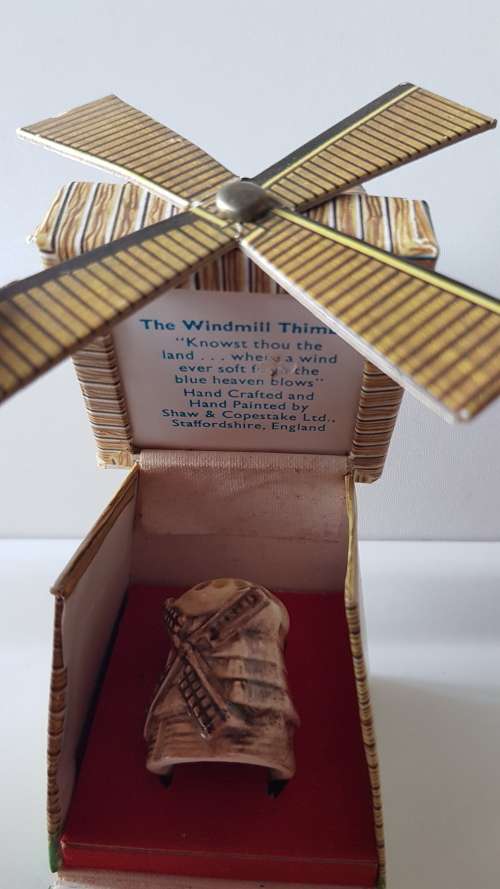 The Windmill
"Knowst thou the
land . . . where a wind
ever soft the
blue heaven blows"
Hand Crafted and
Hand Painted by
Shaw & Copestake Ltd.,
Staffordshire, England